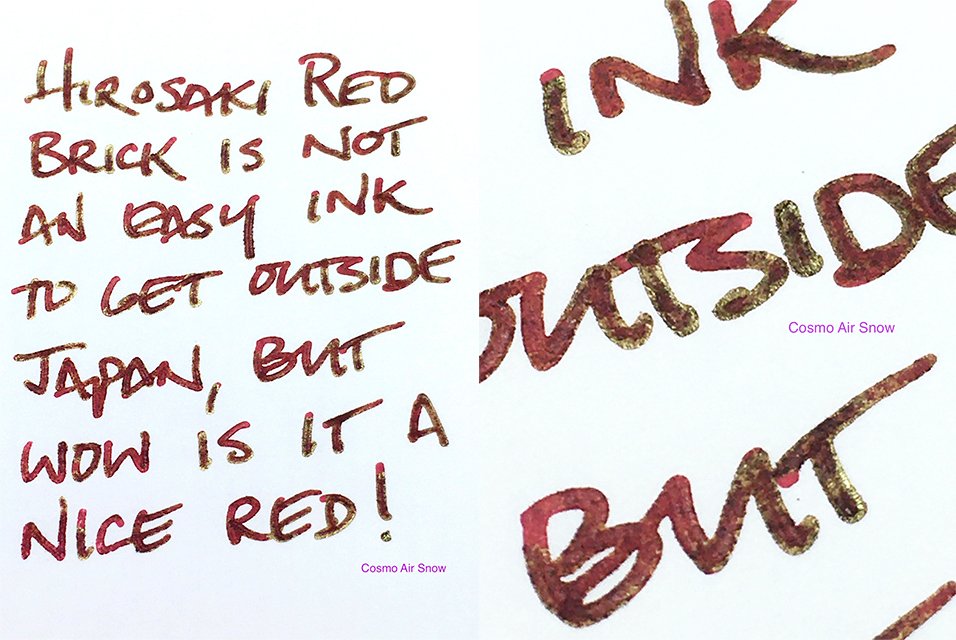 HIROSAKI RED
BRICK IS NOT
AN EASY INK
TO GET OUTSIDE
JAPAN, BUT
WOW IS IT A
NICE RED!
Cosmo Air Snow
INK
OUTSIDE
Cosmo Air Snow
BUT